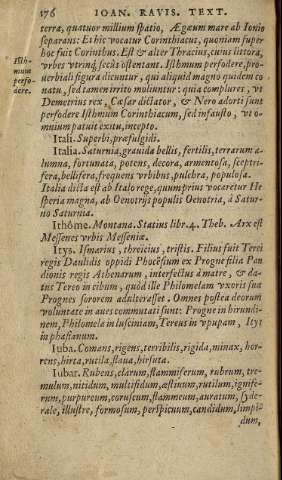 176 IOAN. RAVIS. TEXT.
terra, quatuor millium spatio, Ægæum mare ab Ionio
separans: Et hic vocatur Corinthiacus, quoniam super
hoc fuit Corinthus. Est & alter Thracius, cuius littora,
vrbes vtrinq; sectis ostentant. Isthmum perfodere, pro-
uerbiali figura dicuntur, qui aliquid magno quidem co
natu, sed tamen irrito moliuntur: quia complures, vt
Demetrius rex, Cæsar dictator, & Nero adorti sunt
perfodere Isthmum Corinthiacum, sed infausto, vt o-
mnium patuit exitu, incepto.
Isth-
mum
perfo-
dere.
Itali. Superbi, præfulgidi.
Italia. Saturnia, grauida bellis, fertilis, terrarum a-
lumna, fortunata, potens, decora, armentosa, sceptri-
fera, bellifera, frequens vrbibus, pulchra, populosa.
Italia dicta est ab Italo rege, quum prius vocaretur He
speria magna, ab Oenotrijs populis Oenotria, à Satur-
no Saturnia.
Ithôme. Montana. Statius libr. 4. Theb. Arx est
Messenes vrbis Messeniæ.
Itys. Ismarius, threicius, tristis. Filius fuit Terei
regis Daulidis oppidi Phocēsium ex Progne filia Pan
dionis regis Athenarum, interfectus à matre, & da-
tus Tereo in cibum, quòd ille Philomelam vxoris suæ
Prognes sororem adulterasset. Omnes postea deorum
voluntate in aues commutati sunt: Progne in hirundi-
nem, Philomela in lusciniam, Tereus in vpupam, Itys
in phasianum.
Iuba. Comans, rigens, terribilis, rigida, minax, hor-
rens, hirta, rutila, flaua, hirsuta.
Iubar. Rubens, clarum, flammiferum, rubrum, tre-
mulum, nitidum, multifidum, æstiuum, rutilum, ignife-
rum, purpureum, coruscum, flammeum, auratum, syde-
rale, illustre, formosum, perspicuum, candidum, limpi-
dum,